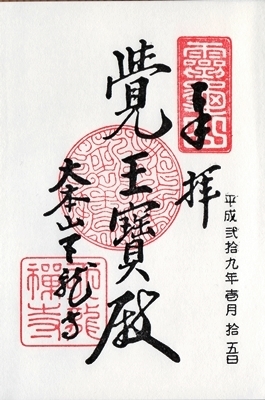 平成弐拾九年壱月拾五日
奉拝
覺王寶殿
大本山天龍寺
靈龜山
天龍禅寺